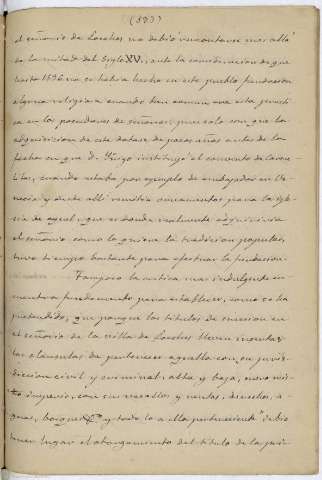 (583)
el señorio de Loeches no debió remontarse mas allá
de la mitad del Siglo XV, ante la consideracion de que
hasta 1596 no se habia hecho en este pueblo fundacion
alguna religiosa cuando tan comun era esta practi-
ca en los poseedores de señorios; pues solo con que la
adquisicion de este datara de pocos años antes de la
fecha en que D. Iñigo instituyó el convento de Carme-
litas, cuando estaba por ejemplo de embajador en Ve-
necia y desde alli remitia ornamentos para la igle-
sia de aquel, que es donde realmente adquiriria
el señorio como lo quiere la tradicion popular,
tuvo tiempo bastante para efectuar la fundacion.
Tampoco la critica mas indulgente en-
cuentra fundamento para establecer, como se ha
pretendido, que porque los titulos de sucesion en
el señorio de la villa de Loeches lleven incoutas
las clausulas de pertenecer aquella con su juris-
diccion civil y criminal, alta y baja, mero mis-
to imperio, con sus vasallos y rentas, derechos, a-
guas, bosques y todo lo a ella perteneciente" debio
tener lugar el otorgamiento del titulo de la pri-